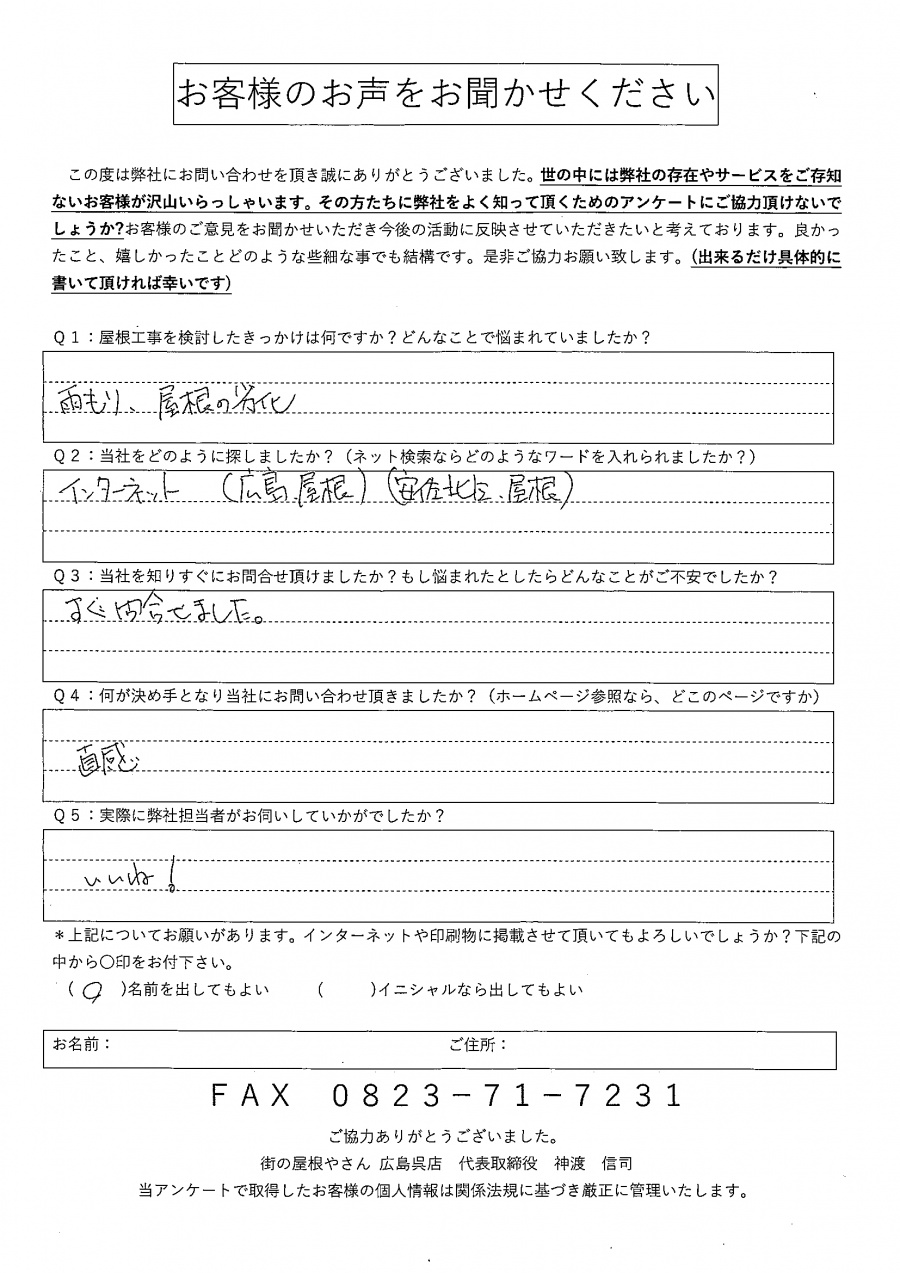 お客様のお声をお聞かせください
この度は弊社にお問い合わせを頂き誠にありがとうございました。世の中には弊社の存在やサービスをご存知
ないお客様が沢山いらっしゃいます。その方たちに弊社をよく知って頂くためのアンケートにご協力頂けないで
しょうか?お客様のご意見をお聞かせいただき今後の活動に反映させていただきたいと考えております。良かっ
たこと、嬉しかったことどのような些細な事でも結構です。是非ご協力お願い致します。(出来るだけ具体的に
書いて頂ければ幸いです)
Q1：屋根工事を検討したきっかけは何ですか？どんなことで悩まれていましたか？
雨もり、屋根の劣化
Q2：当社をどのように探しましたか？（ネット検索ならどのようなワードを入れられましたか？）
インターネット （広島、屋根）（安佐北区、屋根）
Q3：当社を知りすぐにお問合せ頂けましたか？もし悩まれたとしたらどんなことがご不安でしたか？
すぐ問合せました。
Q4：何が決め手となり当社にお問い合わせ頂きましたか？（ホームページ参照なら、どこのページですか）
直感
Q5：実際に弊社担当者がお伺いしていかがでしたか？
いいね！
＊上記についてお願いがあります。インターネットや印刷物に掲載させて頂いてもよろしいでしょうか？下記の
中から〇印をお付下さい。
（ 〇 ）名前を出してもよい （ ）イニシャルなら出してもよい
お名前： ご住所：
FAX 0823－71－7231
ご協力ありがとうございました。
街の屋根やさん 広島呉店 代表取締役 神渡 信司
当アンケートで取得したお客様の個人情報は関係法規に基づき厳正に管理いたします。